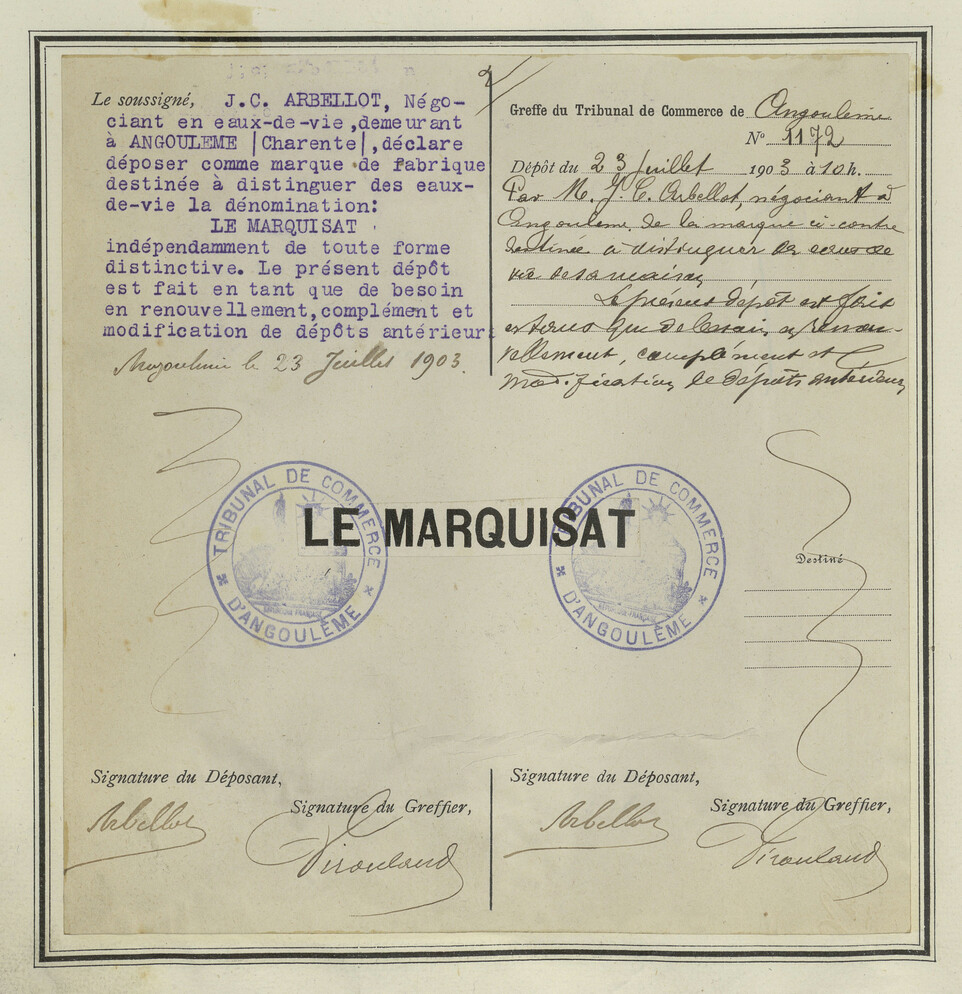 Le soussigné, J.C. ARBELLOT, Négo-
ciant en eaux-de-vie,demeurant
à ANGOULEME |Charente|,déclare
déposer comme marque de fabrique
destinée à distinguer des eaux-
de-vie la dénomination:
LE MARQUISAT
indépendamment de toute forme
distinctive. Le présent dépôt
est fait en tant que de besoin
en renouvellement,complément et
modification de dépôts antérieurs
le 23 Juillet 1903.
Greffe du Tribunal de Commerce de Angoulême
N° 1172
Dépôt du 23 Juillet 1903 à 10 h.
Par M. J. C. Arbellot, négociant à
Angoulême, de la marque ci-contre
destinée à distinguer des eaux de
vie
Le présent dépôt est fait
en tant que de besoin, en renou-
vellement, complément et
modification de dépôts antérieurs
TRIBUNAL DE COMMERCE
D'ANGOULÊME
RÉPUBLIQUE FRANÇAISE
LE MARQUISAT
TRIBUNAL DE COMMERCE
D'ANGOULÊME
RÉPUBLIQUE FRANÇAISE
Destiné
Signature du Déposant,
Signature du Greffier,
Arbellot
Signature du Déposant,
Signature du Greffier,
Arbellot